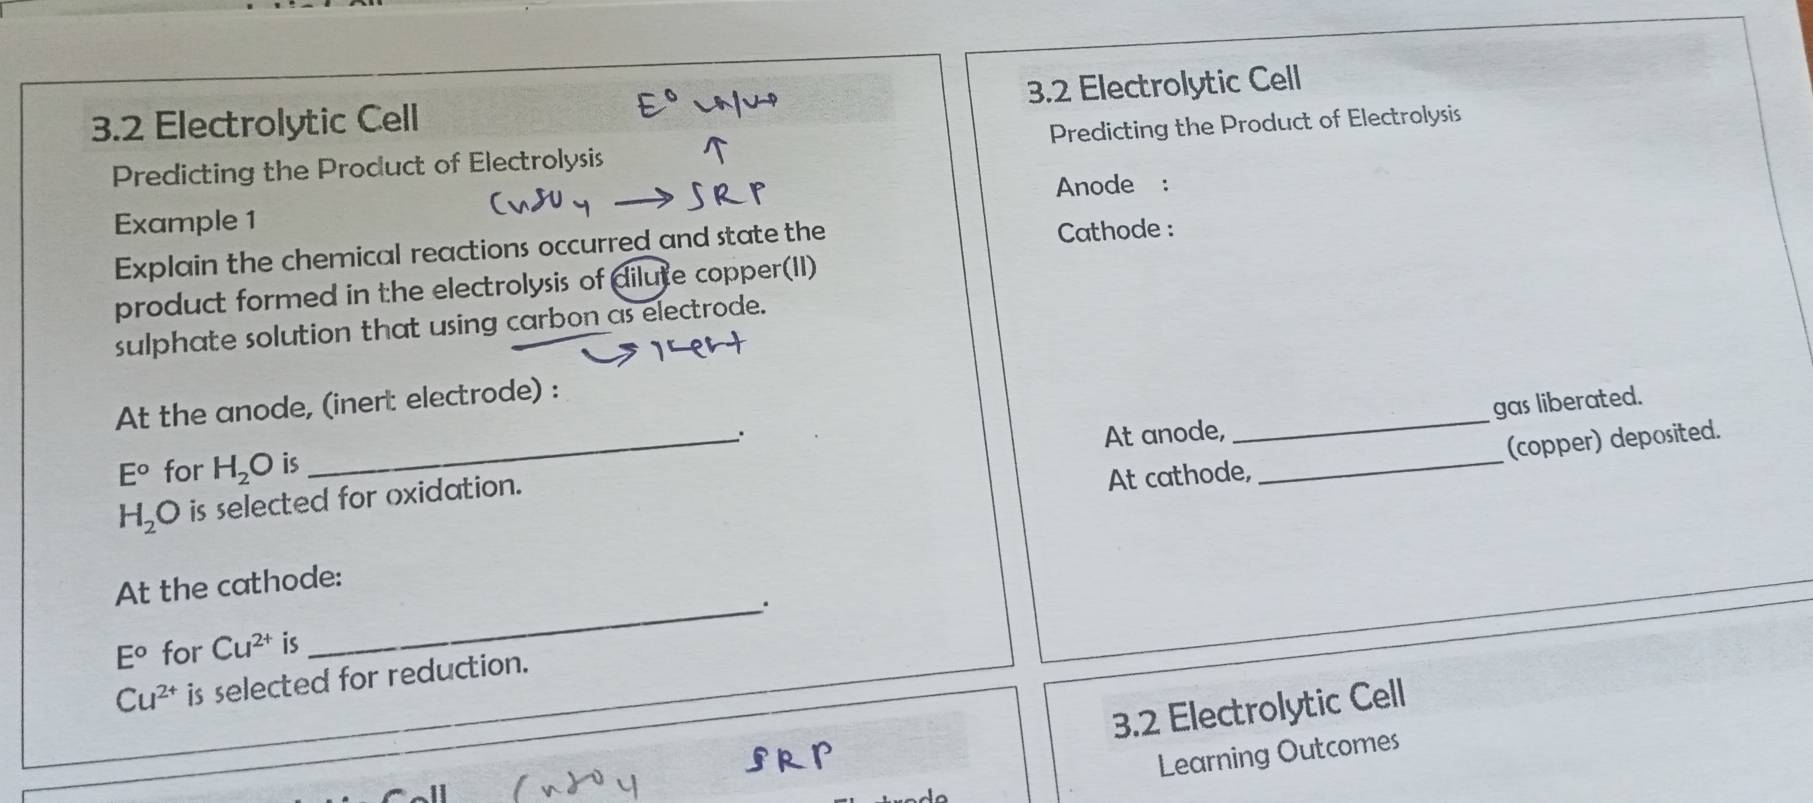 3.2 Electrolytic Cell
E° value
Predicting the Product of Electrolysis
↑
CuSO4 → SRP
Example 1
Explain the chemical reactions occurred and state the
product formed in the electrolysis of dilute copper(II)
sulphate solution that using carbon as electrode.
↳ inert
At the anode, (inert electrode) :
E° for H₂O is ____________.
H₂O is selected for oxidation.
At the cathode:
E° for Cu²⁺ is ____________.
Cu²⁺ is selected for reduction.
3.2 Electrolytic Cell
Predicting the Product of Electrolysis
Anode :
Cathode :
At anode, ____________ gas liberated.
At cathode, ____________ (copper) deposited.
CuSO4 SRP
3.2 Electrolytic Cell
Learning Outcomes